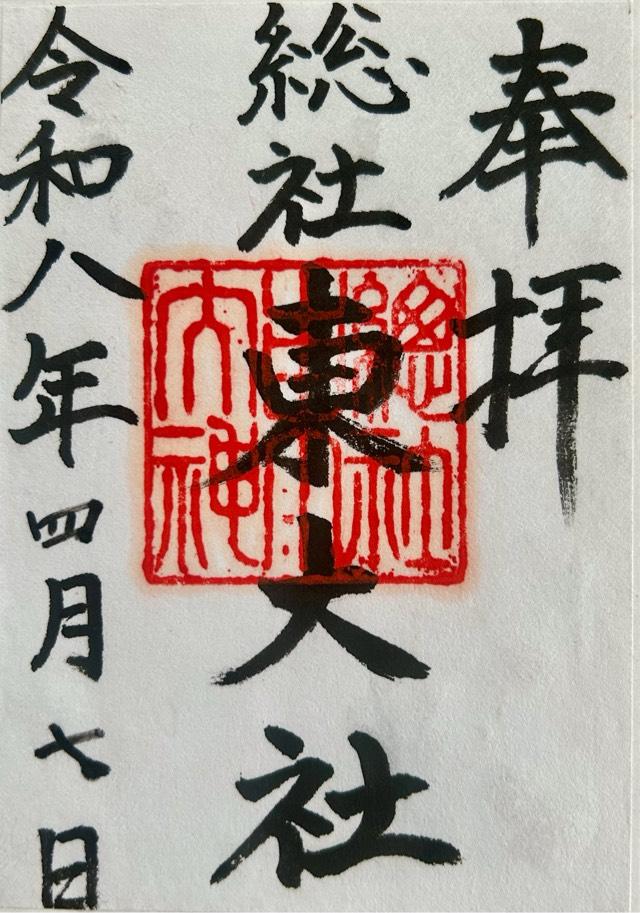 奉拝
総社東大社
令和八年四月七日
總社
大神